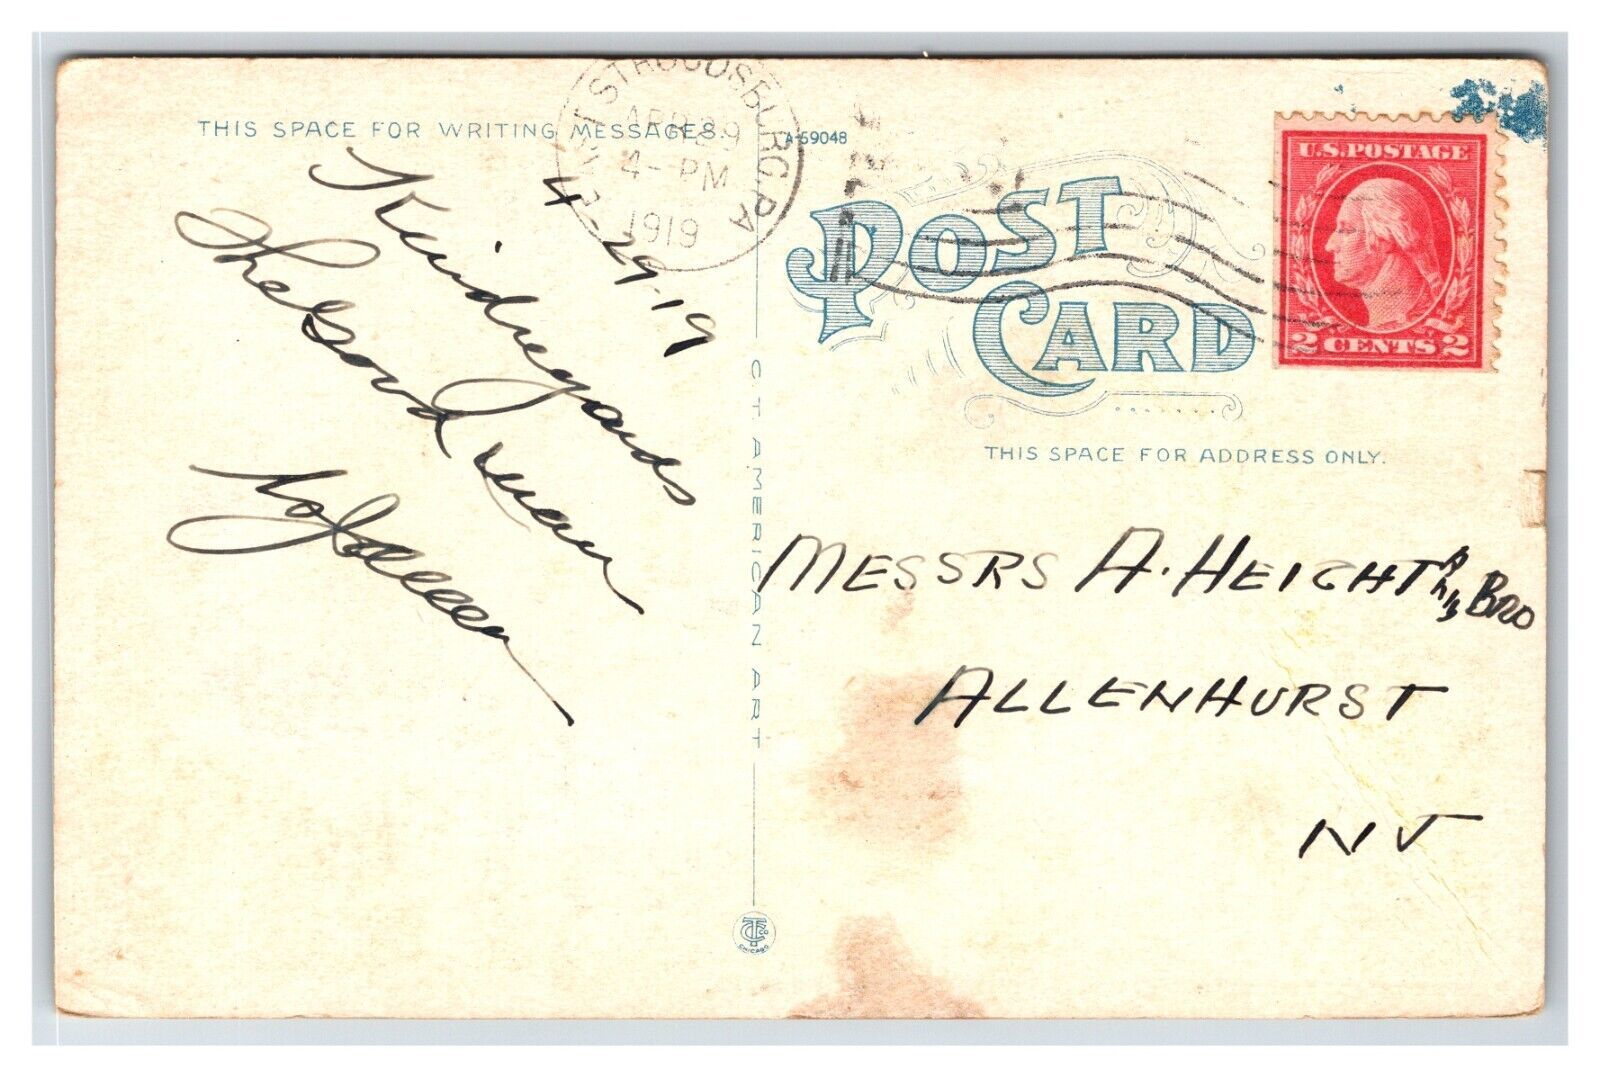 THIS SPACE FOR WRITING MESSAGES.
A-59048
EAST STROUDSBURG, PA
APR 29
4-PM
1919
4-29-19
Kind regards
The
man
POST CARD
U.S. POSTAGE
2 CENTS 2
THIS SPACE FOR ADDRESS ONLY.
MESSRS A. HEIGHT & Bro
ALLENHURST
NJ
C T AMERICAN ART
CTCo
CHICAGO